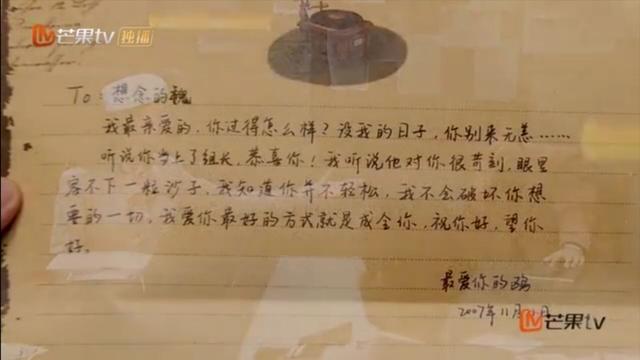 芒果tv 独播
To: 想念的魏
我最亲爱的，你过得怎么样？没我的日子，你别来无恙……
听说你当上了组长，恭喜你！我听说他对你很苛刻，眼里
容不下一粒沙子，我知道你并不轻松，我不会破坏你想
要的一切，我爱你最好的方式就是成全你，祝你好，望你
好。
最爱你的鸥
2007年11月 日
芒果tv